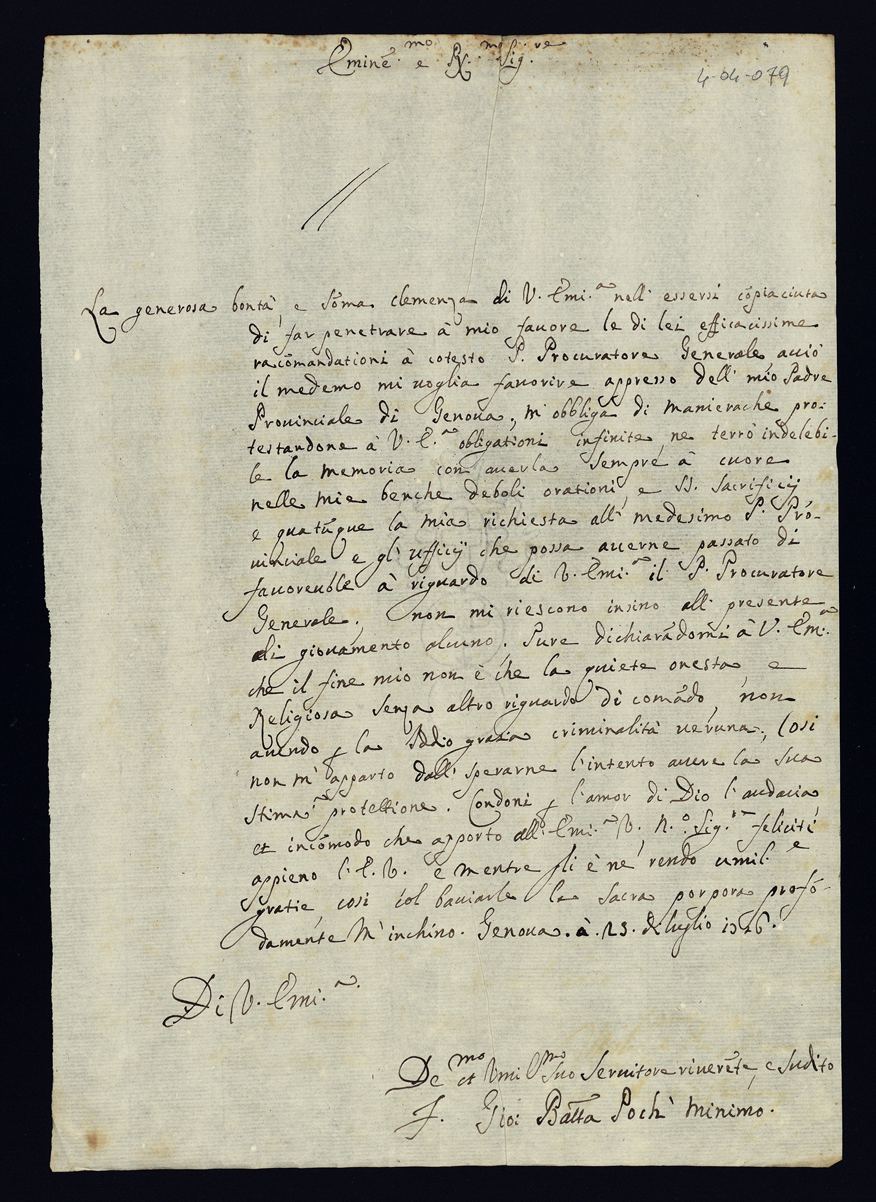 Eminẽ.mo e Rx.mo Sig.re
4-04-079
La generosa bontà, e sõma clemenza di V. Emi.a nell' essersi cõpiaciuta
di far penetrare à mio fauore le di lei efficacissime
racõmandationi à cotesto P. Procuratore Generale acciò
il medemo mi uoglia fauorire appresso dell' mio Padre
Prouinciale di Genoua, m'obbliga di manierache pro-
testandone à V. E.a obligationi infinite, ne terrò indelebi-
le la memoria con auerla sempre à cuore
nelle mie benche deboli orationi, e SS. Sacrificij
e quatũque la mia richiesta all' medesimo P. Pro-
uinciale e gl' ufficij che possa auerne passato di
fauoreuble à riguardo di V. Emi.a il P. Procuratore
Generale, non mi riescono insino all' presente
di giouamento alcuno. Pure dichiarãdomi à V. Emi.a
che il fine mio non è che la quiete onesta, e
Religiosa senza altro riguardo di comãdo, non
auendo p la Iddio grazia criminalità ueruna, Cosi
non m'apparto dall' sperarne l'intento auere la sua
stima.a protettione. Condoni p l'amor di Dio l'audacia,
et incõmodo che apporto all' Emi.a V. N.o Sig.re feliciti
appieno l'E. V. e mentre gli è ne rendo umil.e
gratie, cosi col baciarle la sacra porpora profõ-
damente m'inchino. Genoua. à. 23. di luglio 1726.
Di V. Emi.a
De.mo et Vmil.mo Suo Seruitore riuerẽte, e sudito
F. Gio: Batta Pochì Minimo.